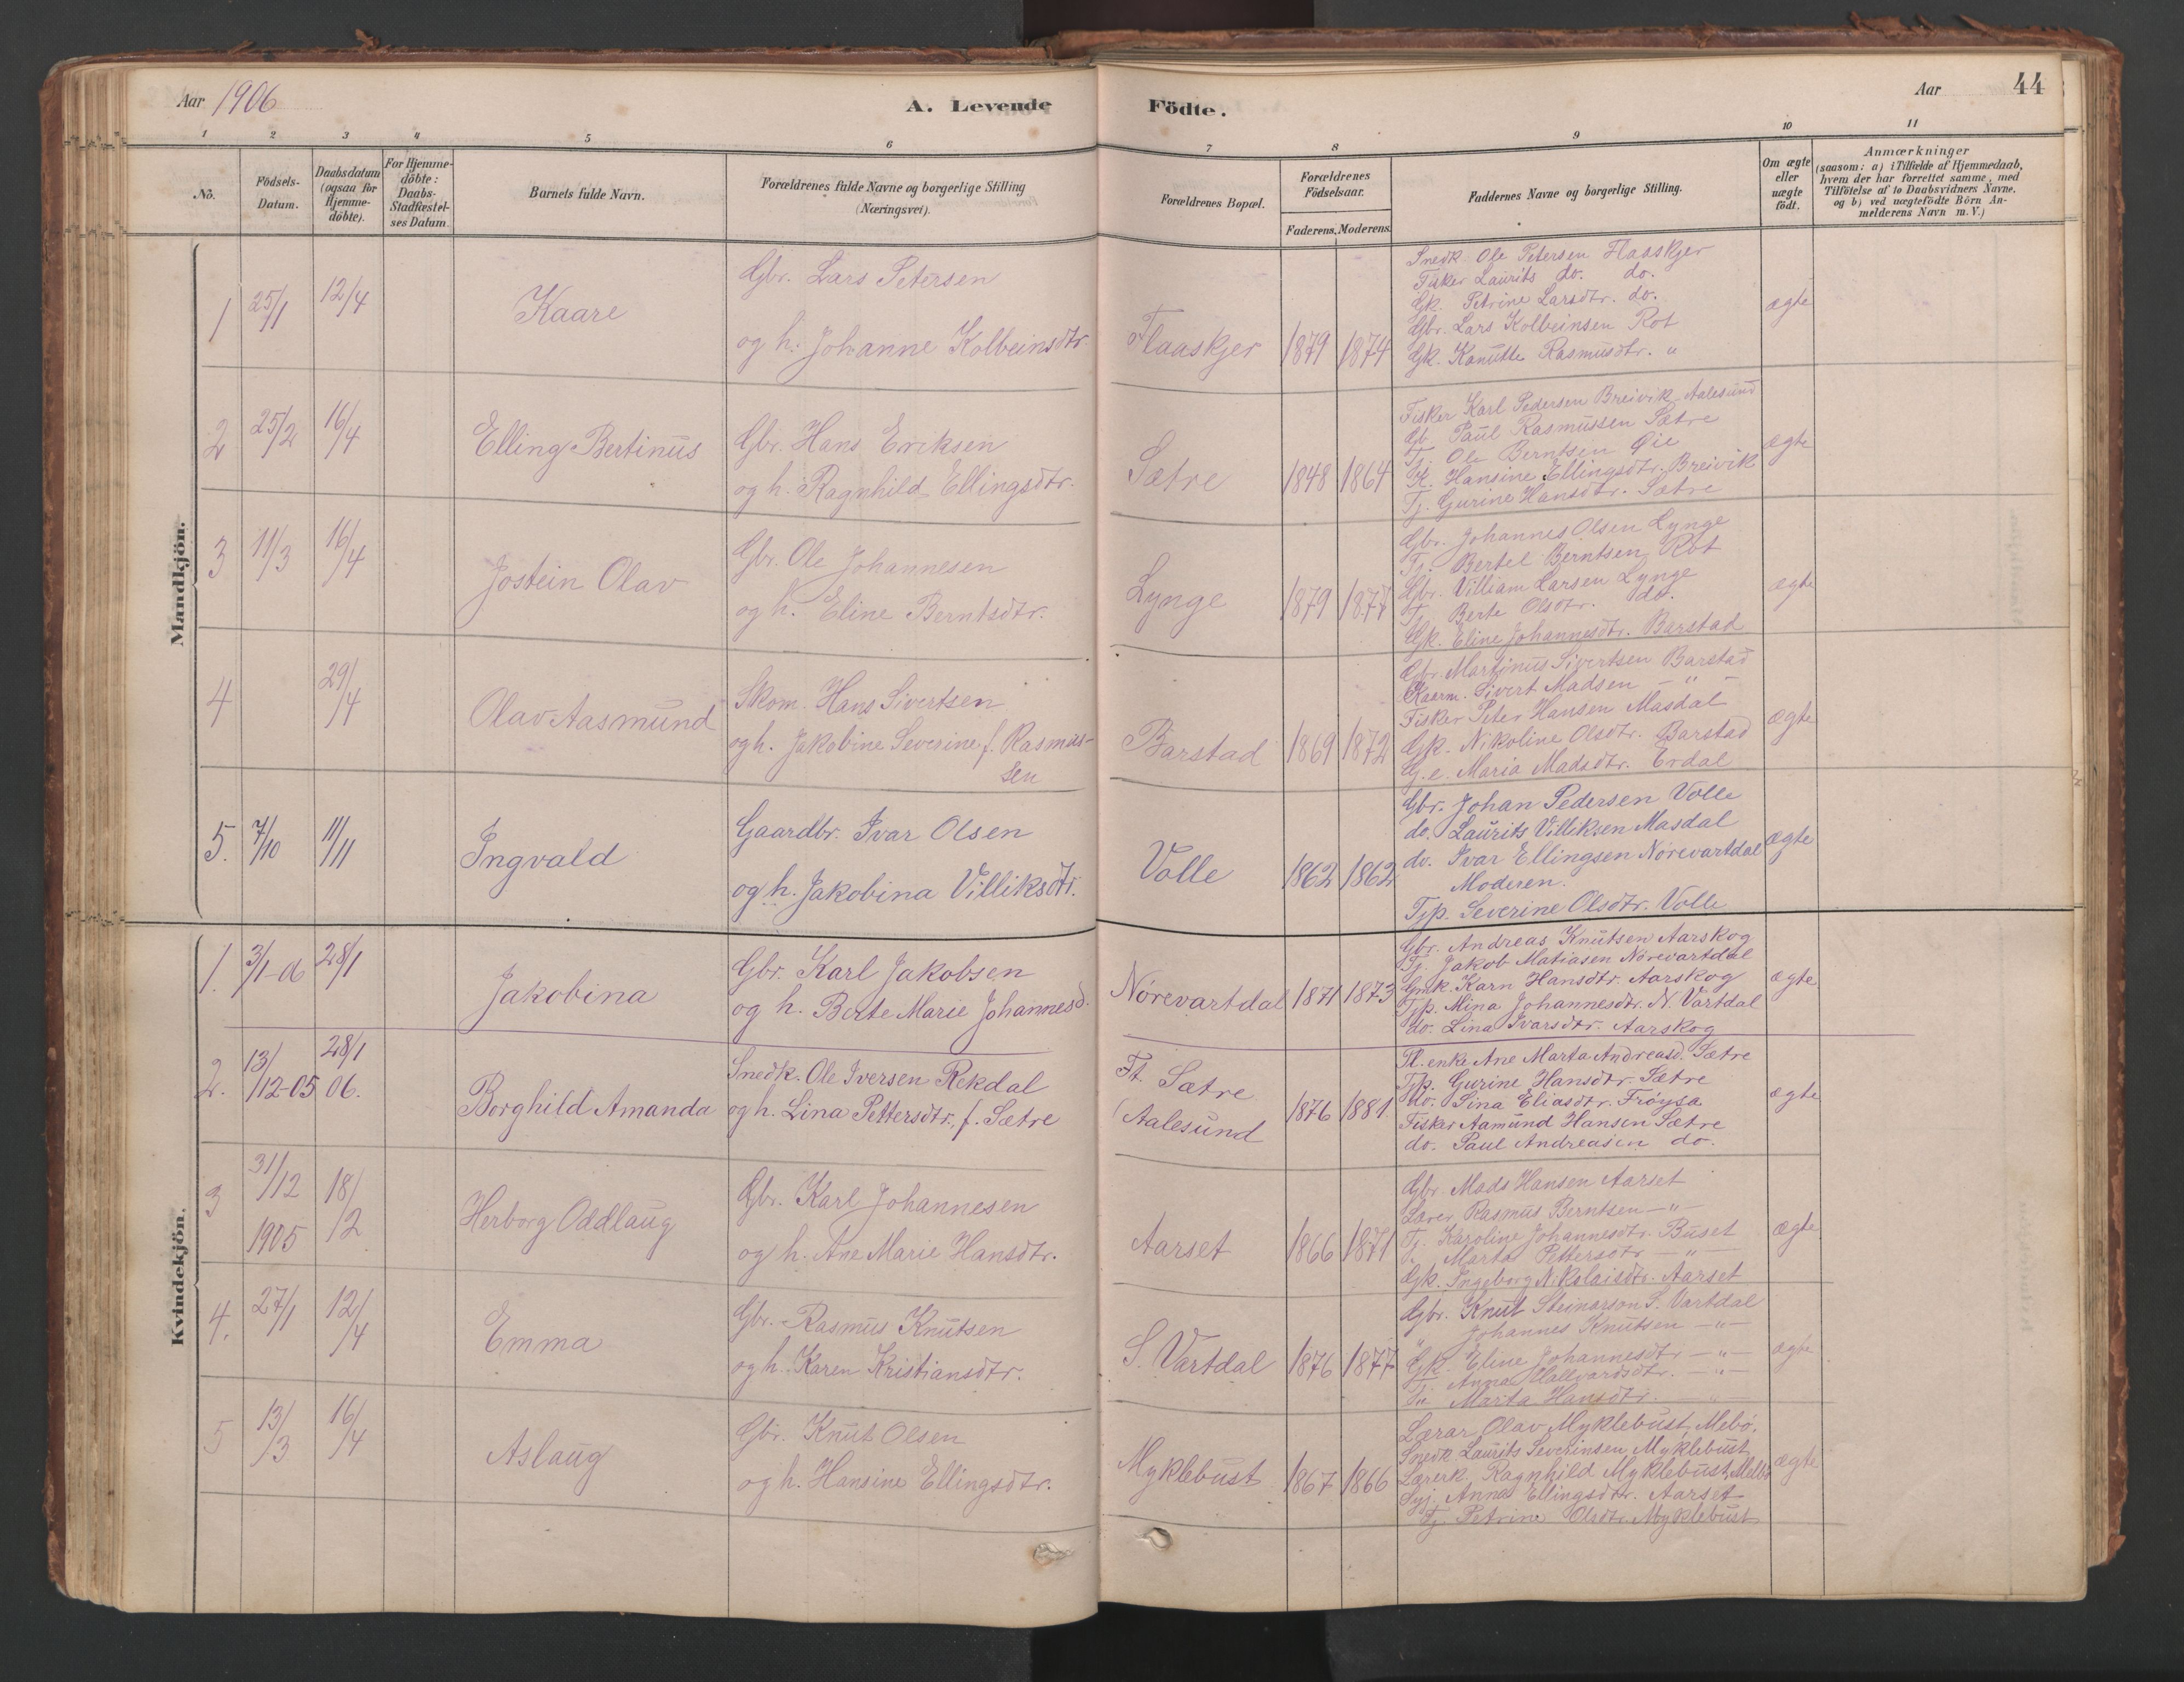 Aar 1906
A. Levende
Födte.
Aar
44
1 2 3 4 5 6 7 8 9 10 11
Nò.
Födsels-
Datum.
Daabsdatum
(ogsaa for
Hjemme-
döbte).
For Hjemme-
döbte:
Daabs-
Stadfæstel-
ses Datum
Barnets fulde Navn.
Forældrenes fulde Navne og borgerlige Stilling
(Næringsvei).
Forældrenes Bopæl.
Forældrenes
Födselsaar.
Faderens. Moderens.
Faddernes Navne og borgerlige Stilling.
Om ægte
eller
uægte
födt.
Anmærkninger
(saasom: a) i Tilfælde af Hjemmedaab,
hvem der har forrettet samme, med
Tilföielse af to Daabsvidners Navne,
og b) ved uægtefödte Börn An-
melderens Navn m. V.)
Mandkjön.
1 25/1 12/4 Kaare
Gbr. Lars Petersen
og h. Johanne Kolbeinsdtr
Flaaskjer 1879 1874
Snedk. Ole Petersen Flaaskjer
Fisker Laurits do. do.
Gk. Petrine Larsdtr. do.
Gbr. Lars Kolbeinsen Rot
Gk. Kanutte Rasmusdtr. "
ægte
2 25/2 16/4 Elling Bertinus
Gbr. Hans Eriksen
og h. Ragnhild Ellingsdtr.
Sætre 1848 1864
Fisker Karl Pedersen Breivik Aalesund
Gb. Paul Rasmussen Sætre
Tj. Ole Berntsen Øie
Fk. Hansine Ellingsdtr. Breivik
Tj. Gurine Hansdtr. Sætre
ægte
3 11/3 16/4 Jostein Olav
Gbr. Ole Johannesen
og h. Eline Berntsdtr.
Lynge 1879 1877
Gbr. Johannes Olsen Lynge
Tj. Bertel Berntsen Rot
Gbr. Villiam Larsen Lynge
Tj. Berte Olsdtr. do.
Gk. Eline Johannesdtr. Barstad
ægte
4 29/4 Olav Aasmund
Skom. Hans Sivertsen
og h. Jakobine Severine f. Rasmus-
sen
Barstad 1869 1872
Gbr. Martinus Sivertsen Barstad
Kaarm. Sivert Madsen - " -
Fisker Peter Hansen Masdal
Gk. Nikoline Olsdtr. Barstad
G.e. Maria Madsdtr. Erdal
ægte
5. 7/10 11/11 Ingvald
Gaardbr. Ivar Olsen
og h. Jakobina Villiksdtr.
Volle 1862 1862
Gbr. Johan Pedersen Volle
do. Laurits Villiksen Masdal
do. Ivar Ellingsen Nörevartdal
Moderen.
Tjp. Severine Olsdtr. Volle
ægte
Kvindekjön.
1. 3/1-06 28/1 Jakobina
Gbr. Karl Jakobsen
og h. Berte Marie Johannesd.
Nörevartdal 1871 1873
Gbr. Andreas Knutsen Aarskog
Tj. Jakob Matiasen Nörevartdal
Gmk. Karn Hansdtr. Aarskog
Tjp. Mina Johannesdtr. N. Vartdal
do. Lina Ivarsdtr. Aarskog
ægte
2. 13/12-05 28/1 06. Borghild Amanda
Snedk. Ole Iversen Rekdal
og h. Lina Pettersdtr. f. Sætre
Ft. Sætre
(Aalesund 1876 1881
Pl. enke Ane Marta Andreasd. Sætre
Tjp. Gurine Hansdtr. Sætre
do. Sina Eliasdtr. Fröysa
Fisker Aamund Hansen Sætre
do. Paul Andreasen do.
ægte
3 31/12 1905 18/2 Herborg Oddlaug
Gbr. Karl Johannesen
og h. Ane Marie Hansdtr.
Aarset 1866 1871
Gbr. Mads Hansen Aarset
Lærer Rasmus Berntsen - " -
Tj. Karoline Johannesdtr. Buset
T. Marta Pettersdtr. - " -
Gk. Ingeborg Nikolaisdtr. Aarset
ægte
4. 27/1 12/4 Emma
Gbr. Rasmus Knutsen
og h. Karen Kristiansdtr.
S. Vartdal 1876 1877
Gbr. Knut Steinarson S. Vartdal
" Johannes Knutsen - " -
Gk. Eline Johannesdtr - " -
Tj. Anna Hallvardsdtr. - " -
Marta Hansdtr. - " -
ægte
5 13/3 16/4 Aslaug
Gbr. Knut Olsen
og h. Hansine Ellingsdtr.
Myklebust 1867 1866
Lærar Olav Myklebust, Melbö.
Snedk Laurits Severinsen Myklebust
Lærerk. Ragnhild Myklebust, Melbö
Syj. Anna Ellingsdtr. Aarset
Tj. Petrine Olsdtr. Myklebust
ægte